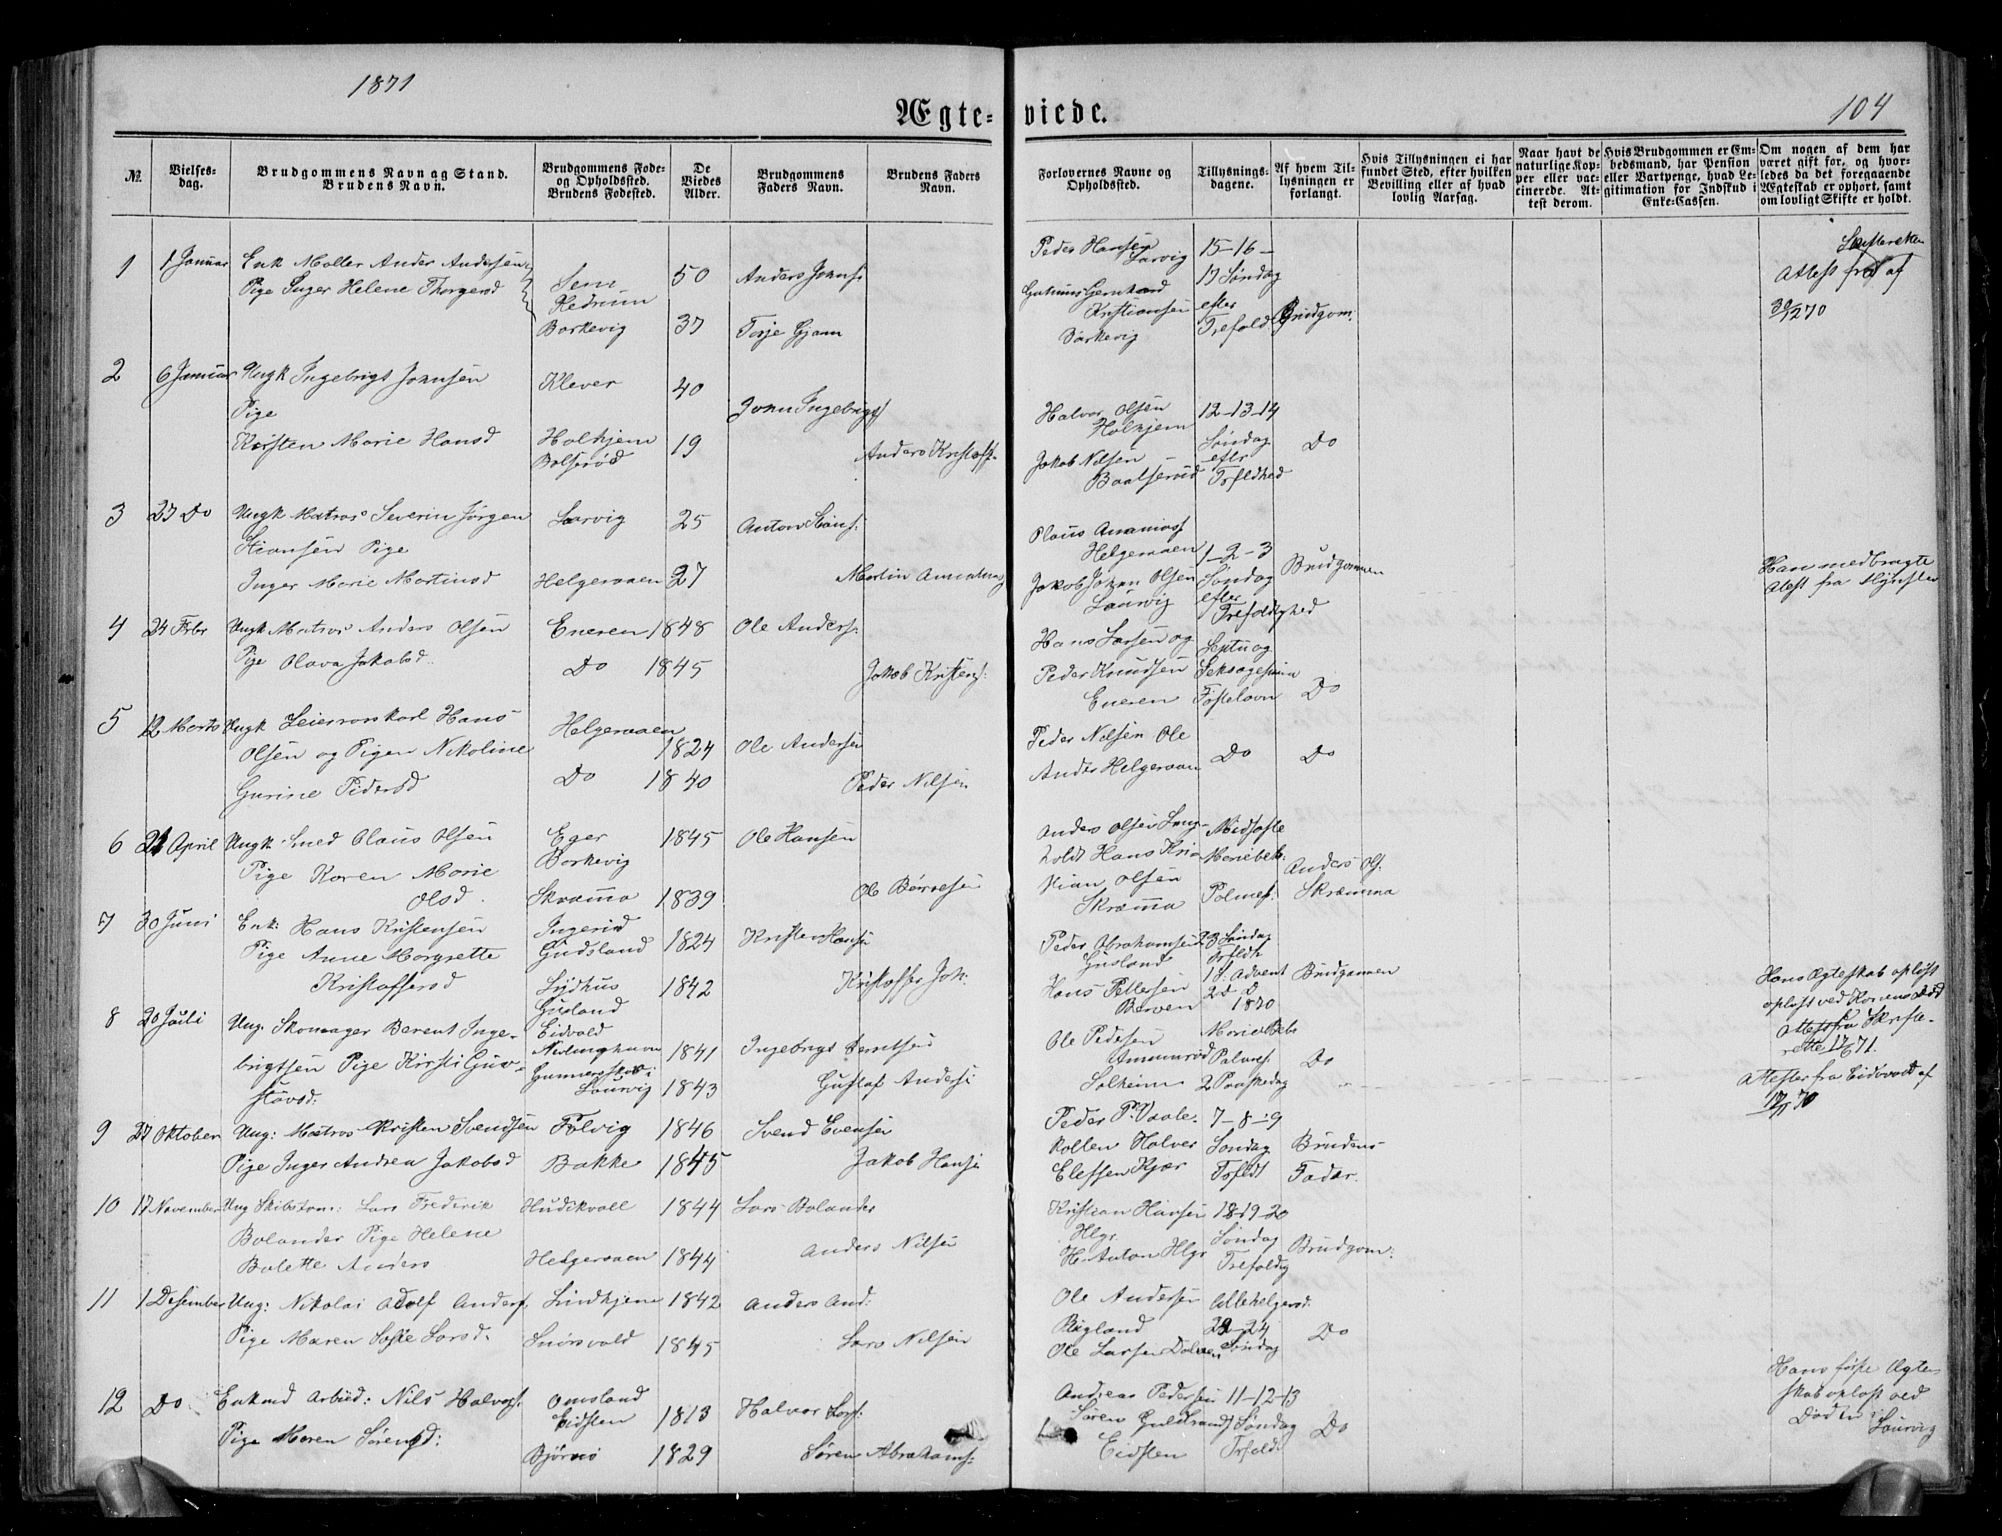 1871
Ægteviede.
104
№.
Vielses-
dag.
Brudgommens Navn og Stand.
Brudens Navn.
Brudgommens Føde-
og Opholdssted.
Brudens Fødested.
De
Viedes
Alder.
Brudgommens
Faders Navn.
Brudens Faders
Navn.
Forlovernes Navne og
Opholdssted.
Tillysnings-
dagene.
Af hvem Til-
lysningen er
forlangt.
Hvis Tillysningen ei har
fundet Sted, efter hvilken
Bevilling eller af hvad
lovlig Aarsag.
Naar havt de
naturlige Kop-
per eller vac-
cinerede. At-
test derom.
Hvis Brudgommen er Em-
bedsmand, har Pension
eller Vartpenge, hvad Le-
gitimation for Indskud i
Enke-Cassen.
Om nogen af dem har
været gift før, og hvor-
ledes da det foregaaende
Ægteskab er ophørt, samt
om lovligt Skifte er holdt.
1
1 Januar
Enk Møller Anders Andersen
Pige Inger Helene Thorgersd
Sem
Hedrum
Barkevig
50
37
Anders Johns:
Terje Gjønn
Peder Hansen
Larvig
Kristiansen
Barkevig
15-16-
17 Søndag
efter
Trefold
Brudgom:
Skifteretten
Attest fra af
30/12 70
2
6 Januar
Ungk Ingebrigt Johnsen
Pige
Kirsten Marie Hansd
Klever
Holhjem
Bolserød
40
19
John Ingebrigts
Anders Kristoffs
Halvor Olsen
Holhjem
Jakob Nilsen
Baalserød
12-13-14
Søndag
efter
Trfldhed
Do
3
27 Do
Ungk Matros Severin Jørgen
Stiansen Pige
Inger Marie Martinsd
Larvig
Helgeroaen
25
27
Anton Stians:
Martin Amundsen
Claus Amamas
Helgeroaen
Jakob Johan Olsen
Laurvig
1-2-3
Søndag
efter
Trefoldighed
Brudgommen
Han medbragte
Attest fra
4
24 Febr
Ungk Matros Anders Olsen
Pige Olava Jakobsd.
Eneren
Do
1848
1845
Ole Anders:
Jakob Kristens:
Hans Larsen og
Peder Knudsen
Eneren
Septuag
Seksagesima
Fastelavn
Do
5
12 Marts
Ungk Leiermoskarl Hans
Olsen og Pigen Nikoline
Gurine Pedersd
Helgeroaen
Do
1824
1840
Ole Andersen
Peder Nilsen
Peder Nilsen Ole
Anders Helgeroaen
Do
Do
6
21 April
Ungk Smed Olaus Olsen
Pige Karen Marie
Olsd.
Eger
Barkevig
Skramma
1845
1839
Ole Hansen
Ole Børresen
Anders Olsen Lang-
holdt Hans Kris
tian Olsen
Skramma
Midfaste
Mariebeb:
Palmes:
Anders Ols.
Skramma
7
30 Juni
Enk: Hans Kristensen
Pige Anne Margrette
Kristoffersd
Ingerid
Gudsland
Lyshus
Gusland
1824
1842
Kristen Hansen
Kristoffer Joh:
Peder Abrahamsen
Gusland
Hans Pettersen
Berven
23 Søndag
Trfldh
1 S. Advent
2 D D
1870
Brudgommen
Hans Ægteskab opløst
opløst ved Konens Død
Attest fra Skifte-
retten 17/6 71.
8
20 Juli
Ung: Skomager Berent Inge-
brigtsen Pige Kirsti Gus-
stavsd:
Eidvold
Nevlinghavn
Laurvig
1841
1843
Ingebrigt Berntsen
Gustaf Anders:
Ole Pedersen
Ammenrød
Solheim
Marie Beb
Palmes
2 Paaskedag
Do
Attester fra Eidsvold af
17/11 70
9
27 Oktober
Ung: Matros Kristen Svendsen
Pige Inger Andrea Jakobsd
Folvig
Bakke
1846
1845
Svend Evensen
Jakob Hansen
Peder P. Vaale-
kollen Halvor
Elefsen Kjær
7-8-9
Søndag
Trfldt
Brudens
Fader.
10
17 November
Ung Skibstøm: Lars Frederik
Bolander Pige Helene
Bolette Anders
Hudikvall
Helgeroaen
1844
1844
Lars Bolander
Anders Nilsen
Kristian Hansen
Hlgr
H. Anton Hlgr
18-19-20
Søndag
Trefoldig
Brudgom:
11
1 Desember
Ung: Nikolai Adolf Anders:
Pige Maren Sofie Larsd.
Lindhjem
Snørsvold
1842
1845
Anders And:
Lars Nilsen
Ole Andersen
Rigland
Ole Larsen Dolven
Allehelgensd.
23-24
Søndag
Do
12
Do
Enkmd Arbeid: Nils Halvors:
Pige Maren Sørensd:
Omsland
Eidsten
Bjørnø
1813
1829
Halvor Lars:
Søren Abrahams:
Andreas Pedersen
Søren Guldbrands
Eidsten
11-12-13
Søndag
Trfold:
Do
Hans første Ægte-
skab opløst ved
Døden i
Laurvig